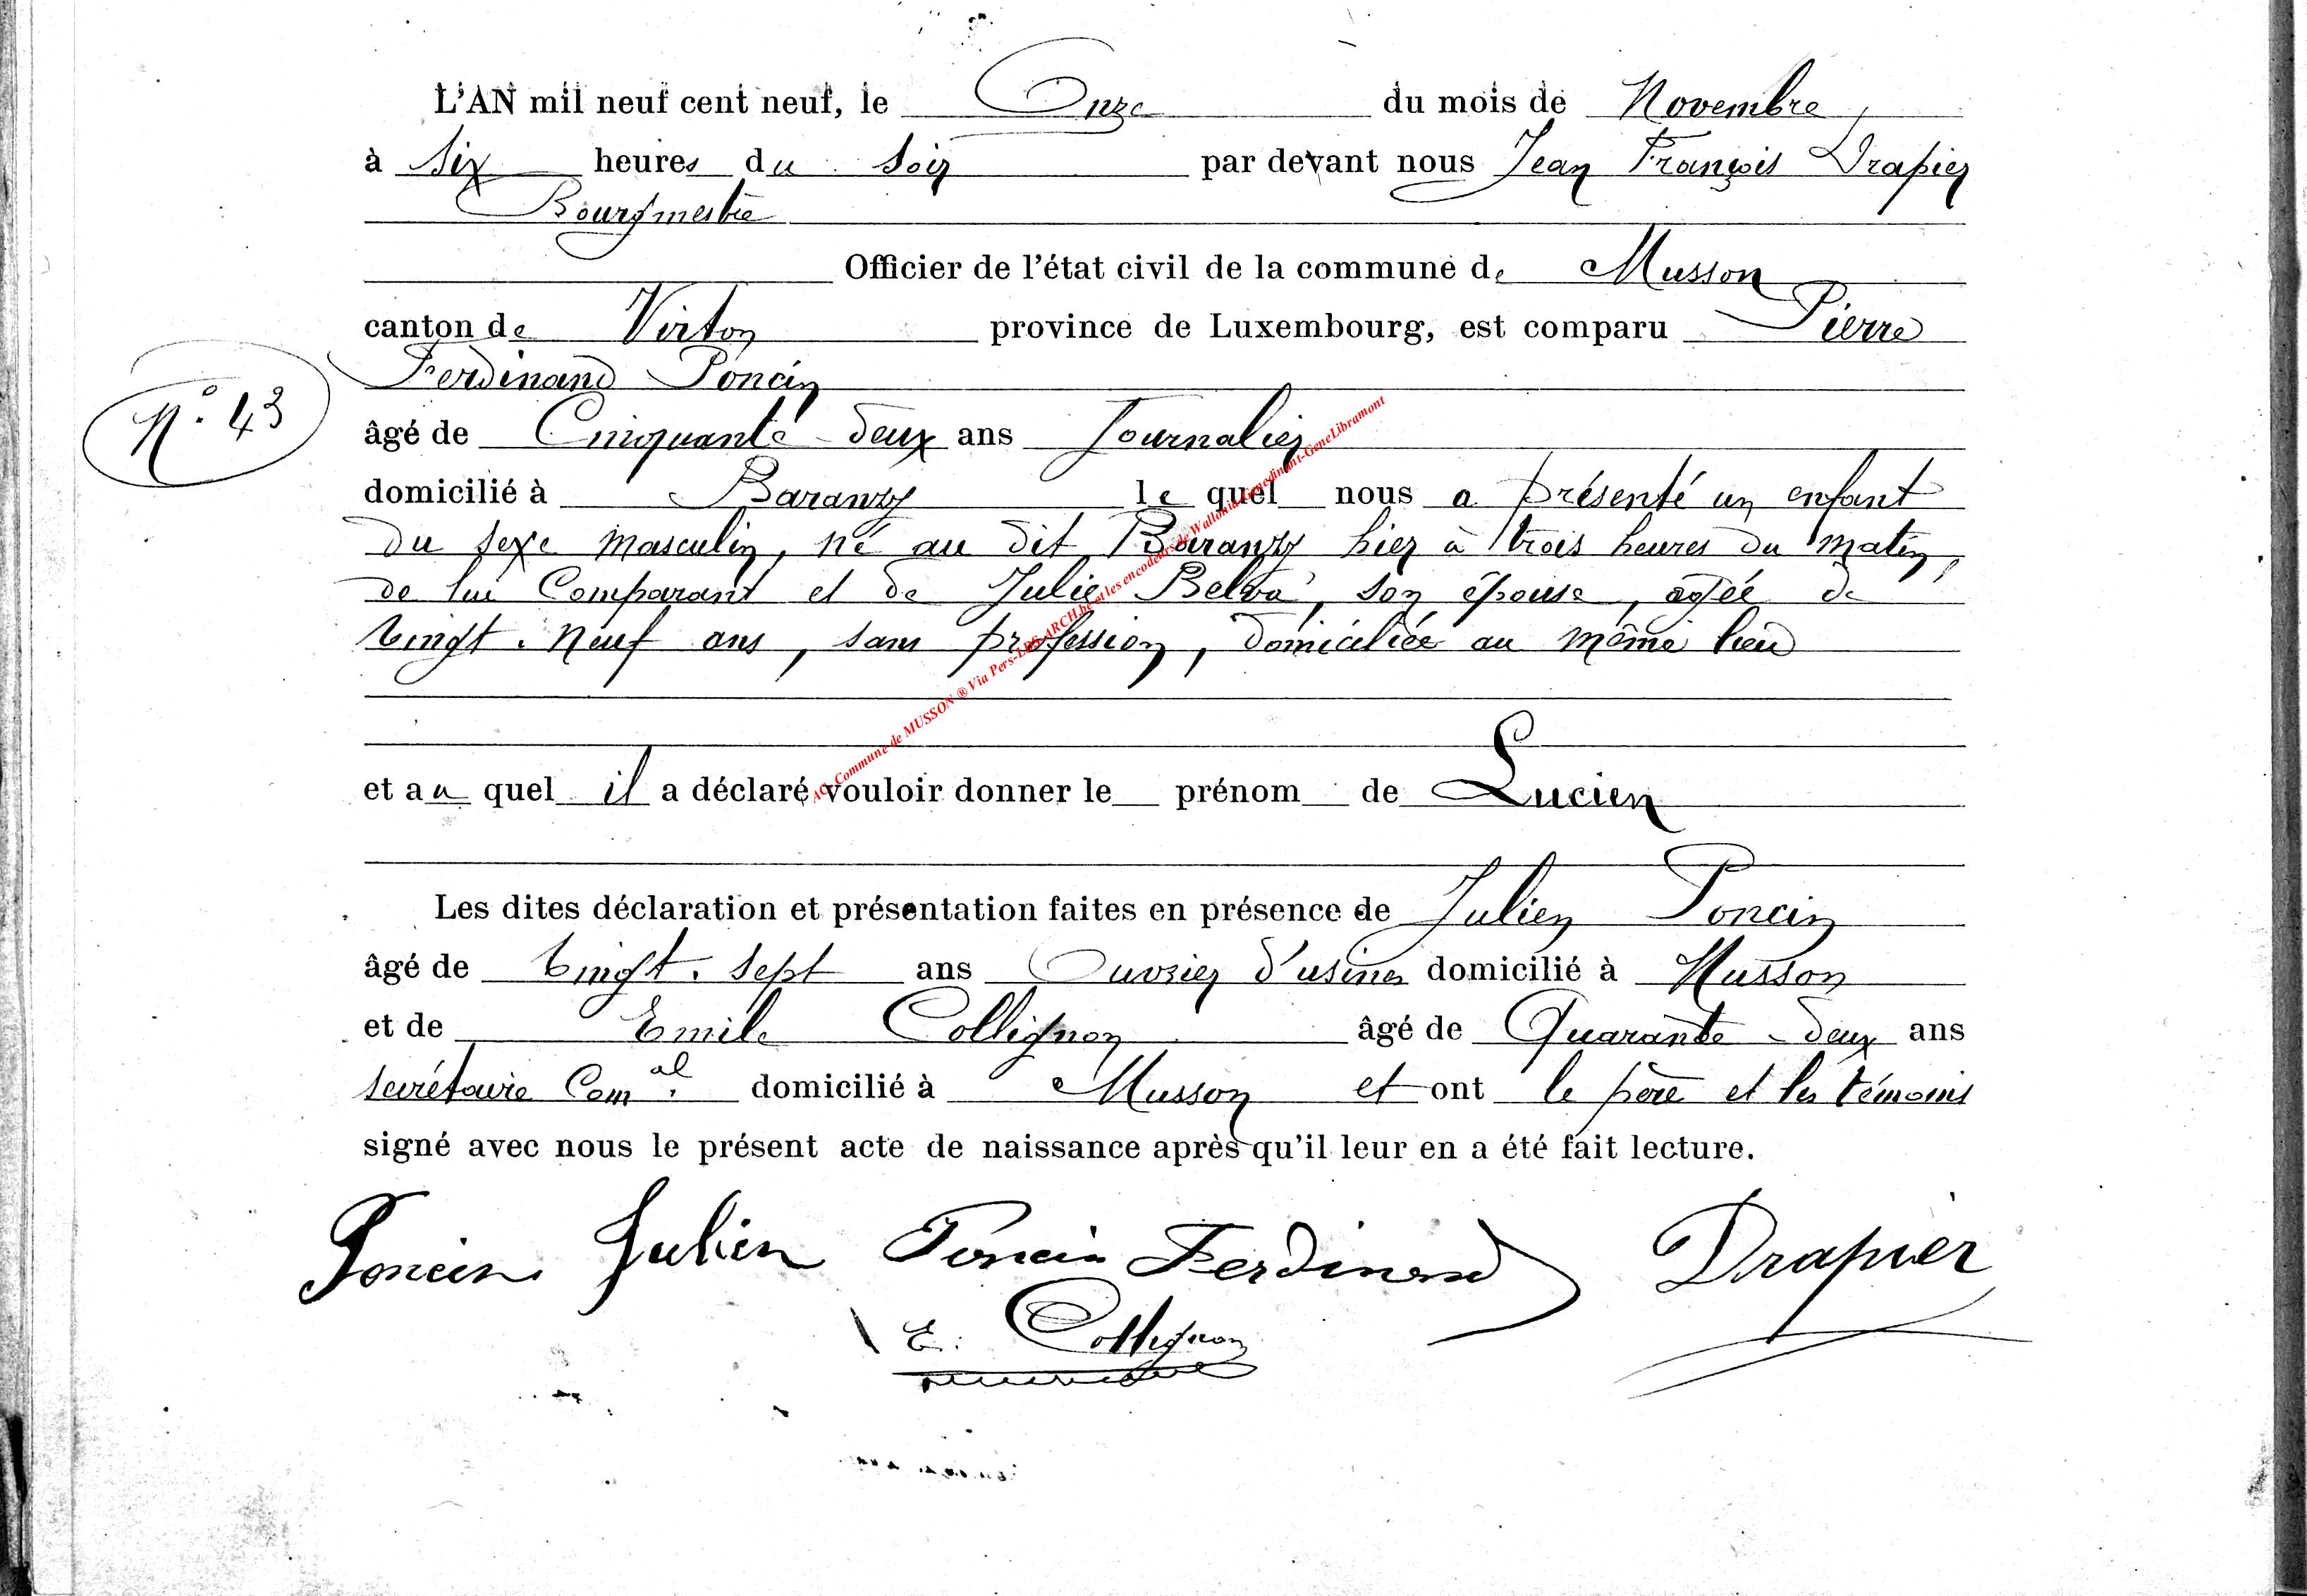 L'AN mil neuf cent neuf, le Onze du mois de Novembre,
à six heures du soir par devant nous Jean François Drapier
Bourgmestre
Officier de l'état civil de la commune de Musson
canton de Virton province de Luxembourg, est comparu Pierre
Ferdinand Poncin
N° 43
âgé de Cinquante-deux ans Journalier
domicilié à Baranzy lequel nous a présenté un enfant
du sexe masculin, né au dit Baranzy hier à trois heures du matin,
de lui Comparant et de Julie Belva, son épouse, agée de
vingt-neuf ans, sans profession, domiciliée au même lieu
AC. Commune de MUSSON ® Via Pers-LDS-ARCH.be et les encodeurs de Wallonia-Genedinant-GeneLibramont
et au quel il a déclaré vouloir donner le prénom de Lucien
Les dites déclaration et présentation faites en présence de Julien Poncin
âgé de vingt-sept ans Ouvrier d'usines domicilié à Musson
et de Emile Collignon âgé de Quarante-deux ans
secrétaire Com.al domicilié à Musson et ont le père et les témoins
signé avec nous le présent acte de naissance après qu'il leur en a été fait lecture.
Poncin Julien Poncin Ferdinand Drapier
E. Collignon